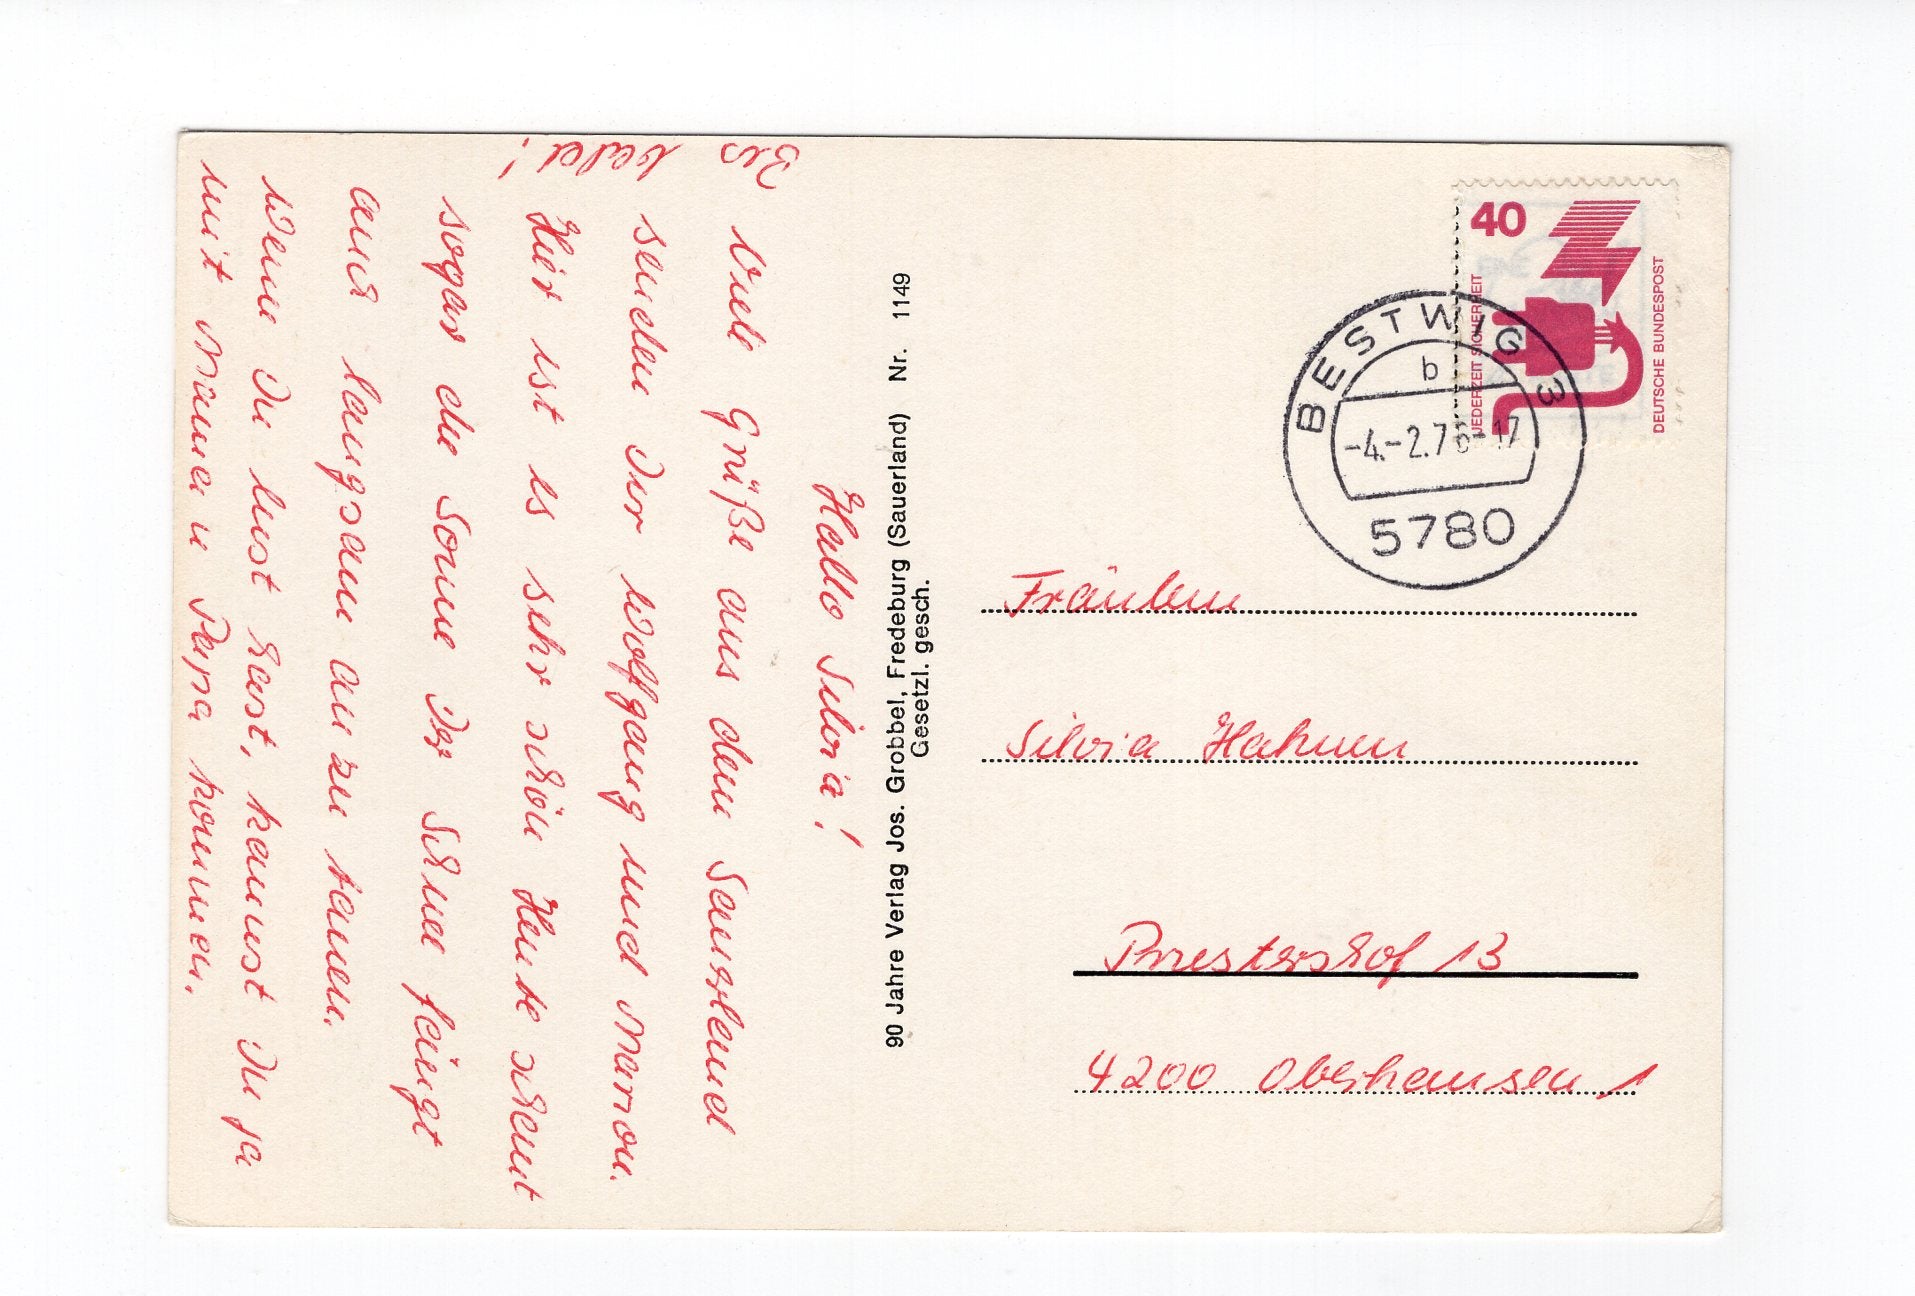 Hallo Silvia!
Viele Grüße aus dem Sauerland
senden Dir Wolfgang und Marion.
Hier ist es sehr schön Heute scheint
sogar die Sonne Der Schnee fängt
auch langsam an zu tauen.
Wenn Du lust hast, kannst Du ja
mit Mama u Papa kommen.
Bis
bald!
90 Jahre Verlag Jos. Grobbel, Fredeburg (Sauerland) Nr. 1149
Gesetzl. gesch.
40
JEDERZEIT SICHERHEIT
DEUTSCHE BUNDESPOST
BESTWIG 3
b
-4.-2.76-17
5780
Fräulein
Silvia Hahnen
Priestershof 13
4200 Oberhausen 1